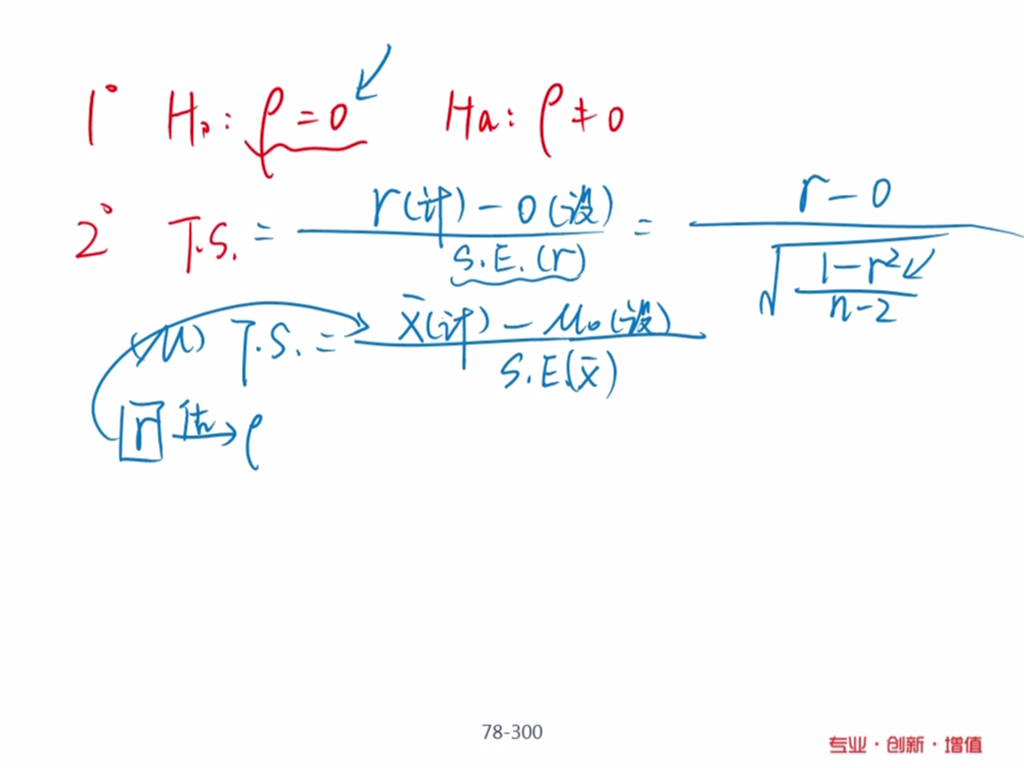 1° H₀: ρ=0 Ha: ρ≠0
2° T.S. = r(计)-0(设) / S.E.(r) = r-0 / √((1-r²)/(n-2))
(μ) T.S. = x̄(计)-μ₀(设) / S.E(x̄)
r 估→ρ
78-300
专业·创新·增值